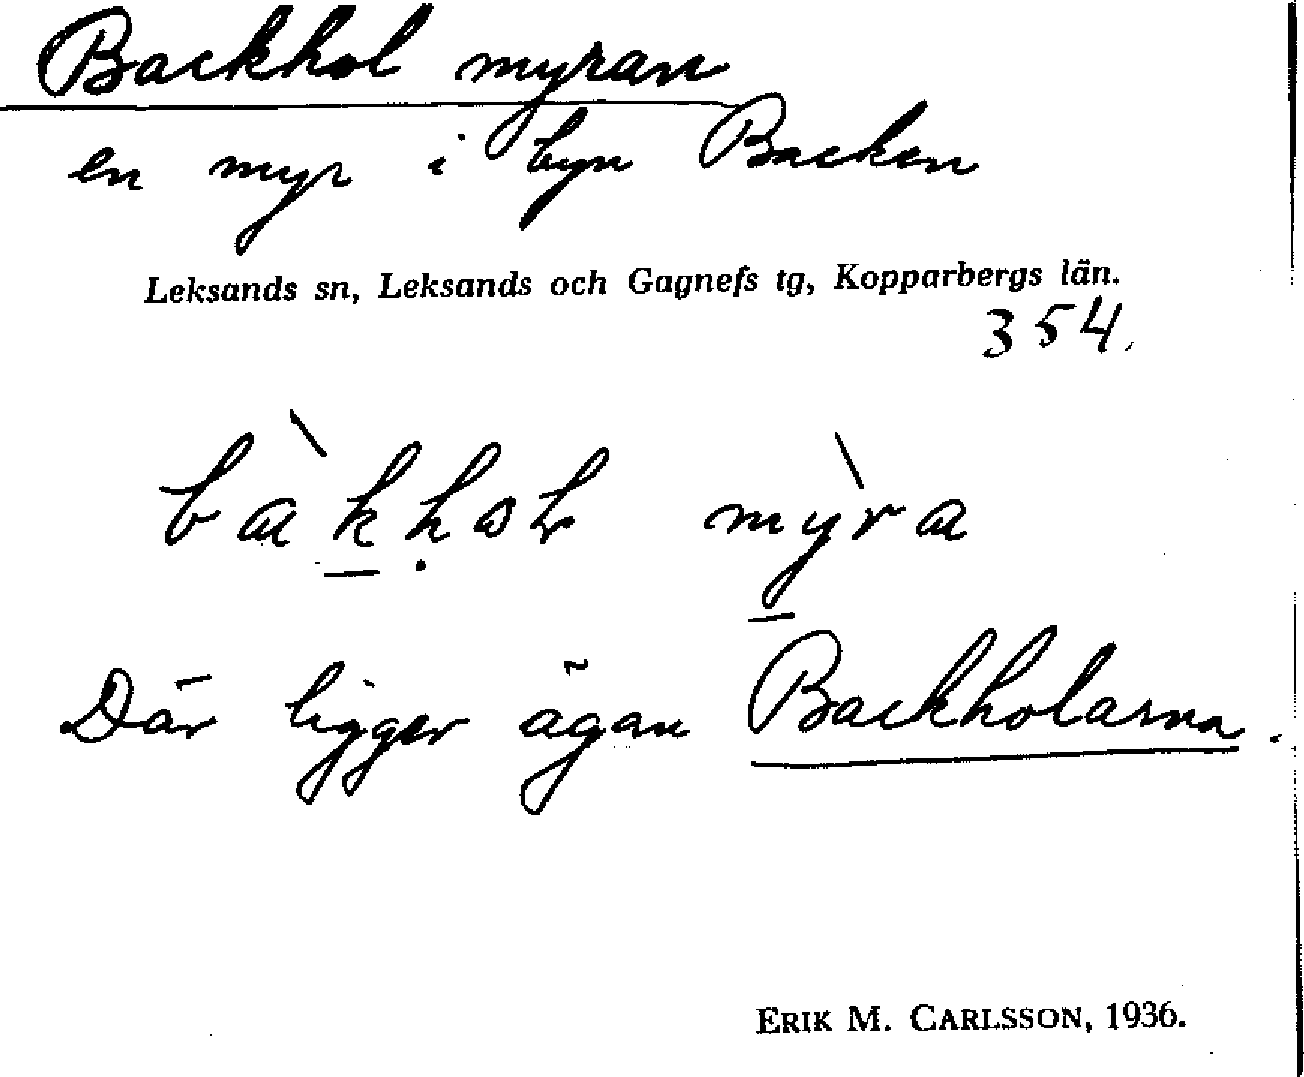 Backhol myran
en myr i byn Backen
Leksands sn, Leksands och Gagnefs tg, Kopparbergs län.
354.
Där ligger ägan Backholarna.
ERIK M. CARLSSON, 1936.